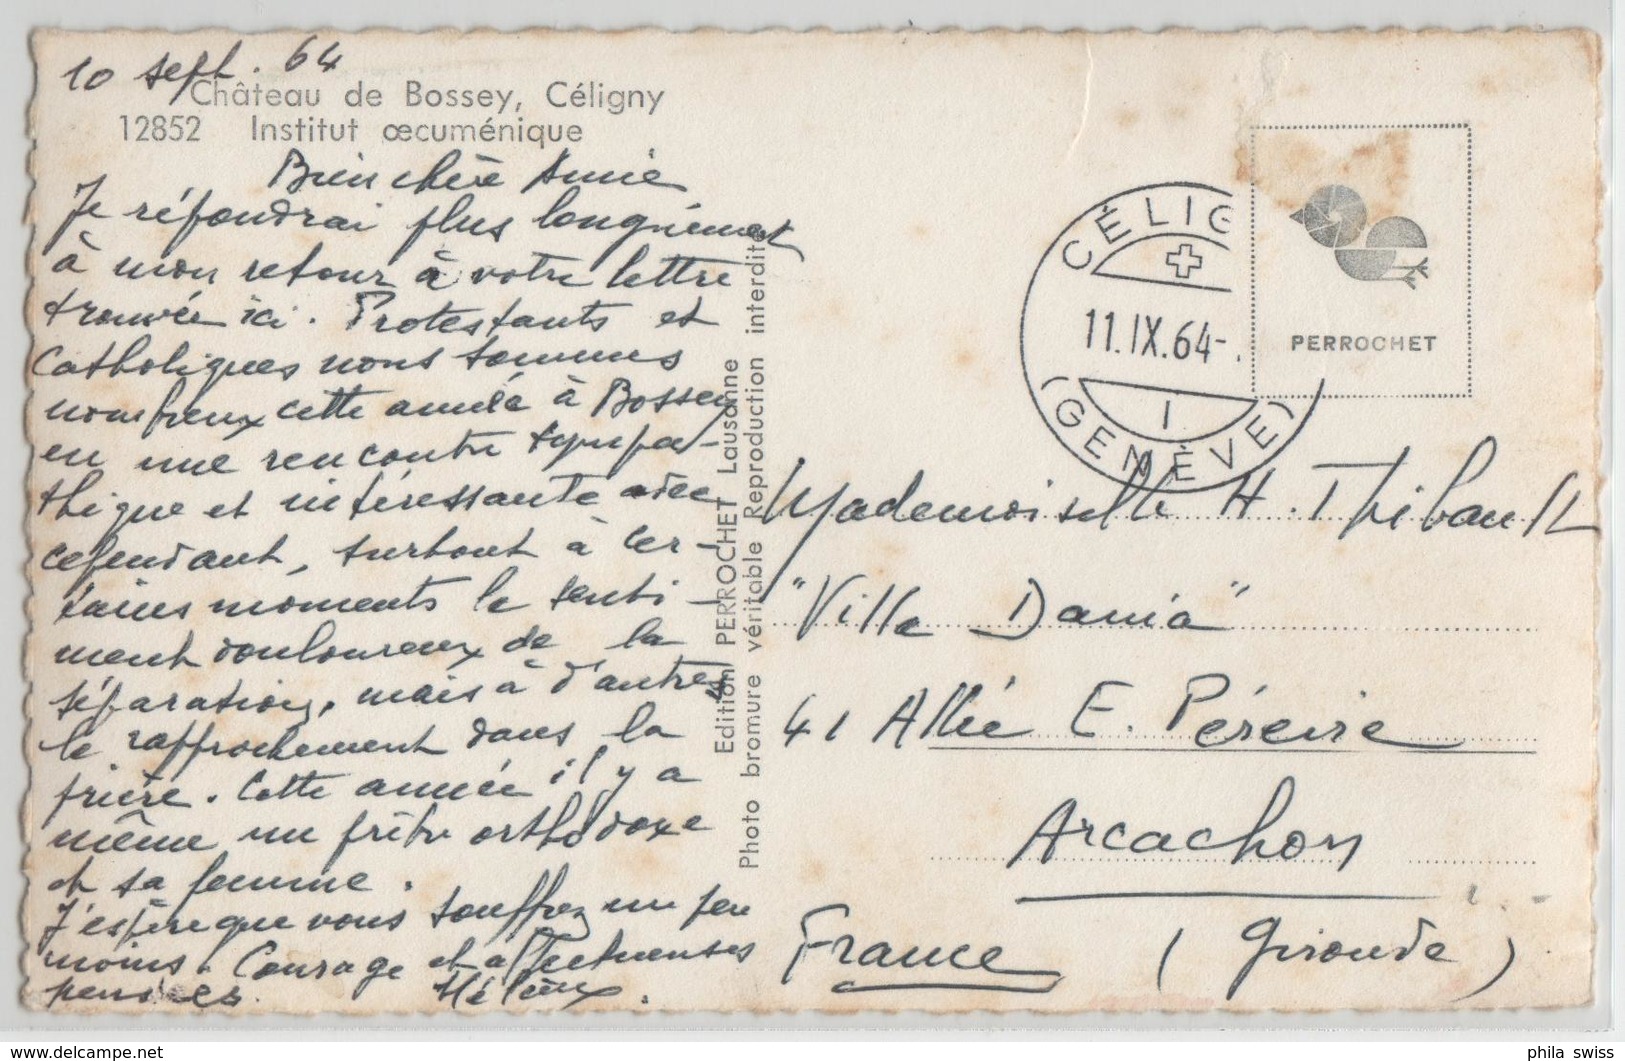 10 sept. 64
Château de Bossey, Céligny
12852 Institut œcuménique
Bien chère Amie
Je répondrai plus longuement
à mon retour à votre lettre
trouvée ici. Protestants et
Catholiques nous sommes
nombreux cette année à Bossey
en une rencontre sympa-
thique et intéressante avec
cependant, surtout à cer-
tains moments le senti-
ment douloureux de la
séparation, mais à d'autres
le rapprochement dans la
prière. Cette année il y a
même un prêtre orthodoxe
et sa femme.
J'espère que vous souffrez un peu
moins. Courage et affectueuses
pensées.
Edition PERROCHET Lausanne
Photo bromure véritable Reproduction interdite
CÉLIG
11.IX.64-.
1
(GENÈVE)
PERROCHET
Mademoiselle H. Thibault
"Villa Dania"
41 Allée E. Péreire
Arcachon
France (Gironde)
delcampe.net
phila_swiss